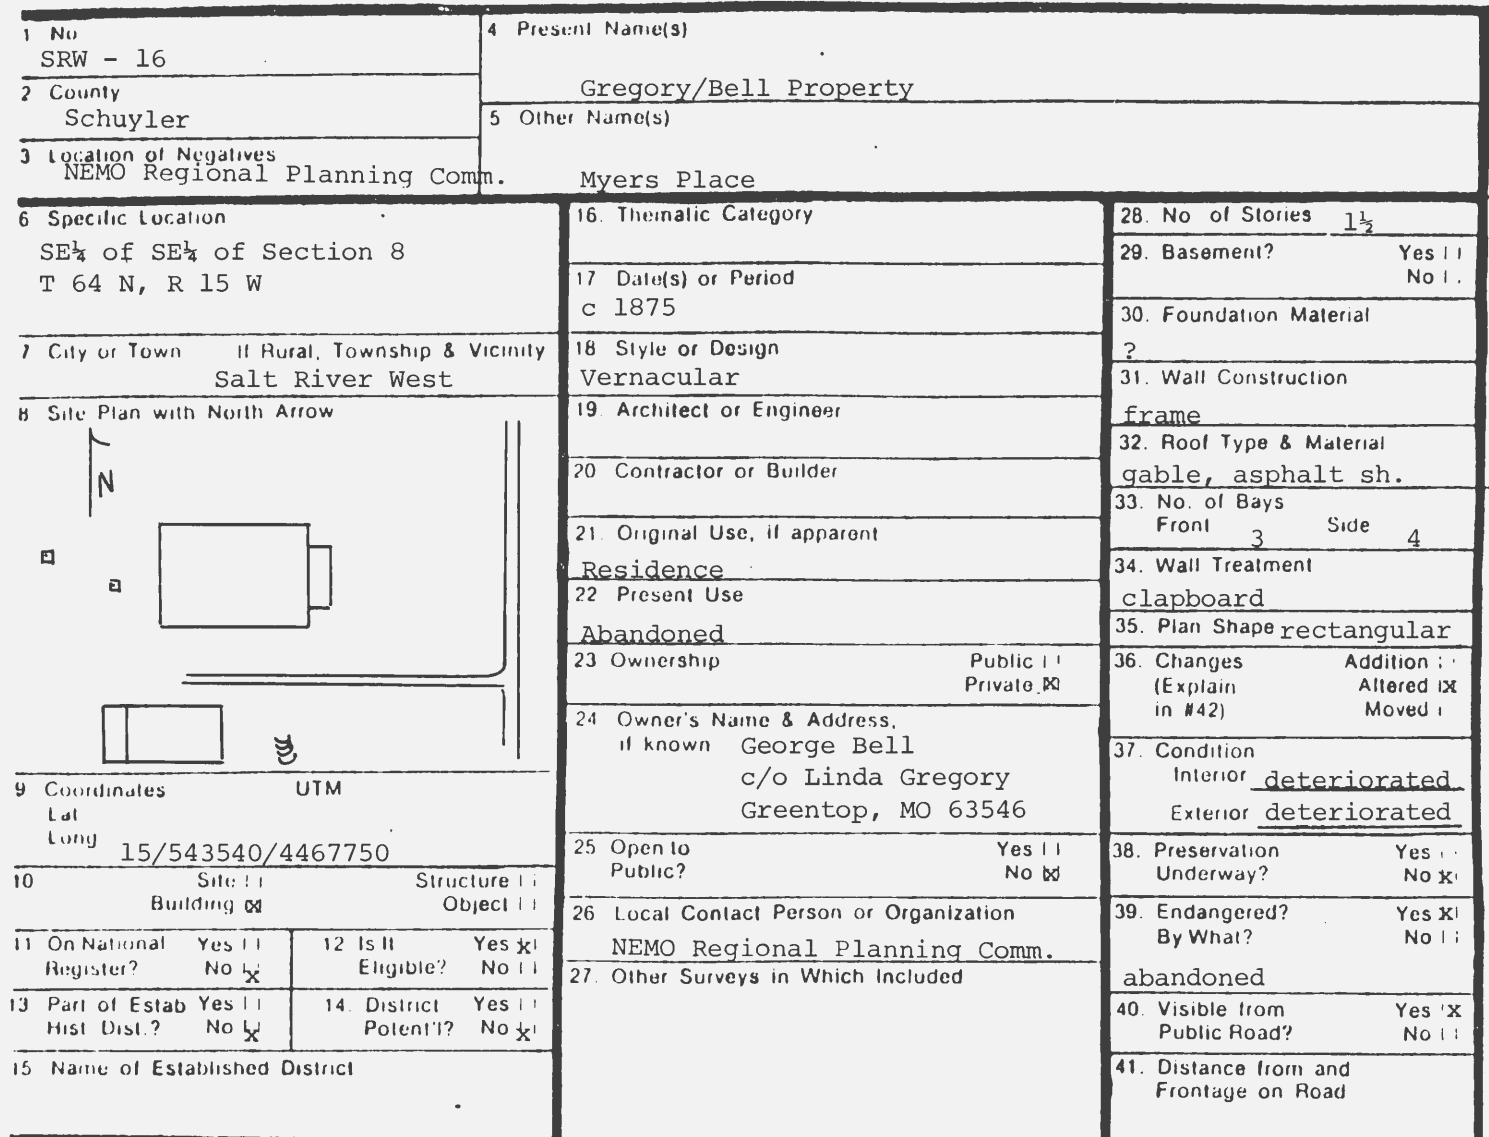 1 No
SRW - 16
2 County
Schuyler
3 Location of Negatives
NEMO Regional Planning Comm.
4 Present Name(s)
Gregory/Bell Property
5 Other Name(s)
Myers Place
6 Specific Location
SE¼ of SE¼ of Section 8
T 64 N, R 15 W
7 City or Town If Rural, Township & Vicinity
Salt River West
8 Site Plan with North Arrow
N
9 Coordinates UTM
Lat
Long
15/543540/4467750
10 Site Structure
Building X Object
11 On National Register? Yes No X
12 Is It Eligible? Yes X No
13 Part of Estab Hist Dist.? Yes No X
14. District Potent'l? Yes No X
15 Name of Established District
16. Thematic Category
17 Date(s) or Period
c 1875
18 Style or Design
Vernacular
19. Architect or Engineer
20 Contractor or Builder
21. Original Use, if apparent
Residence
22 Present Use
Abandoned
23 Ownership Public
Private X
24 Owner's Name & Address,
if known George Bell
c/o Linda Gregory
Greentop, MO 63546
25 Open to Yes
Public? No X
26 Local Contact Person or Organization
NEMO Regional Planning Comm.
27. Other Surveys in Which Included
28. No of Stories 1½
29. Basement? Yes
No
30. Foundation Material
?
31. Wall Construction
frame
32. Roof Type & Material
gable, asphalt sh.
33. No. of Bays
Front 3 Side 4
34. Wall Treatment
clapboard
35. Plan Shape rectangular
36. Changes Addition
(Explain Altered X
in #42) Moved
37. Condition
Interior deteriorated
Exterior deteriorated
38. Preservation Yes
Underway? No X
39. Endangered? Yes X
By What? No
abandoned
40. Visible from Yes X
Public Road? No
41. Distance from and
Frontage on Road